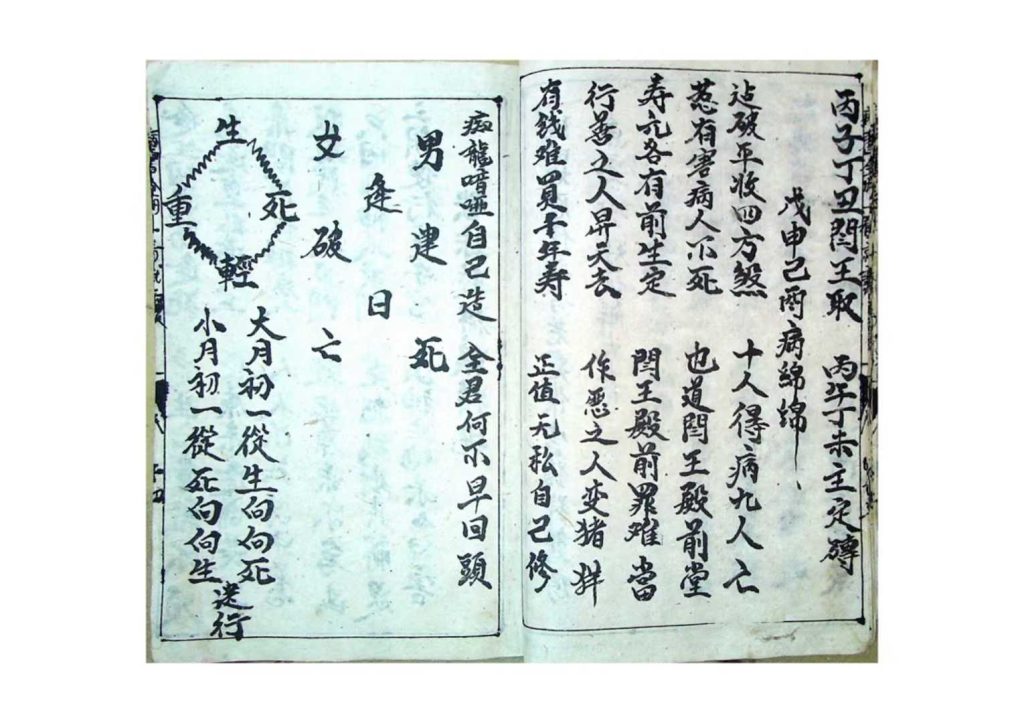 丙子丁丑閆王取 丙午丁未主定磚
戊申己酉病綿綿
迠破平收四方煞 十人得病九人亡
惹有害病人不死 也道閆王殿前堂
寿元各有前生定 閆王殿前罪难當
行善之人昇天去 作惡之人变猪牂
有銭难買千年寿 正值无私自己修
痴龍喑啞自己造 全君何不早回頭
男建死
逄日
女破亡
生
死
重
輕
大月初一從生向向死
小月初一從死向向生
逆行